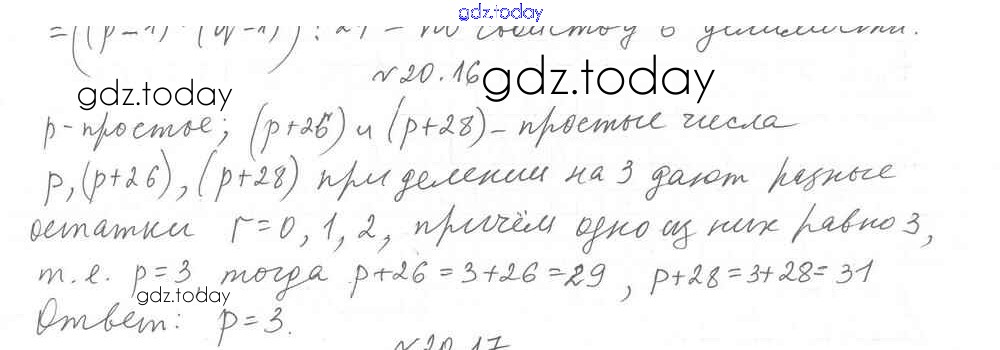 gdz.today
№20.16 gdz.today
gdz.today
p-простое; (p+26) и (p+28) - простые числа
p, (p+26), (p+28) при делении на 3 дают разные
остатки r=0, 1, 2, причём одно из них равно 3,
т.е. p=3 тогда p+26=3+26=29, p+28=3+28=31
gdz.today
Ответ: p=3.
№20.17